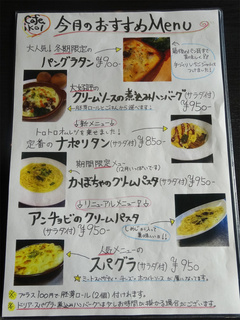 cafe
今月のおすすめMenu
大人気！冬期限定の
パングラタン
￥900
大好評の
クリームソースの煮込みハンバーグ
(サラダ付) ￥950
新メニュー
トロトロオムレツを乗せました！
定番のナポリタン
(サラダ付) ￥850
期間限定メニュー
かぼちゃのクリームパスタ
(サラダ付) ￥950
リニューアルメニュー
アンチョビのクリームパスタ
(サラダ付) ￥950
人気メニューの
スパグラ(サラダ付) ￥950
★プラス100円で胚芽ロール(2個)付けれます。
★ドリア・スパグラ・煮込みハンバーグは少しお時間が掛かる場合がございます。